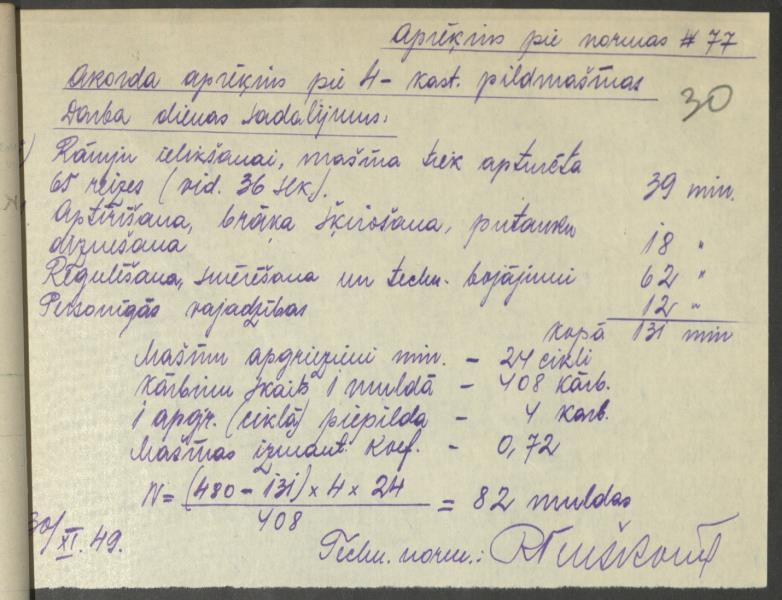 Aprēķins pie normas # 77
Akorda aprēķins pie 4- kast. pildmašīnas
30
Darba dienas sadalījums:
Rāmju ielikšanai, mašīna tiek apturēta
65 reizes (vid. 36 sek). 39 min.
Aptīrīšana, brāķa šķirošana, putekļu
dzēšana 18 "
Regulēšana, smērēšana un techn. bojājumi 62 "
Personīgās vajadzības 12 "
kopā 131 min
Mašīnu apgriezieni min. - 24 cikli
kārbiņu skaits 1 muldā - 408 kārb.
1 apgr. (ciklā) piepilda - 4 karb.
Mašīnas izmant. koef. - 0,72
N = (480 - 131) x 4 x 24 / 408 = 82 muldas
30/XI. 49.
Techn. norm.: